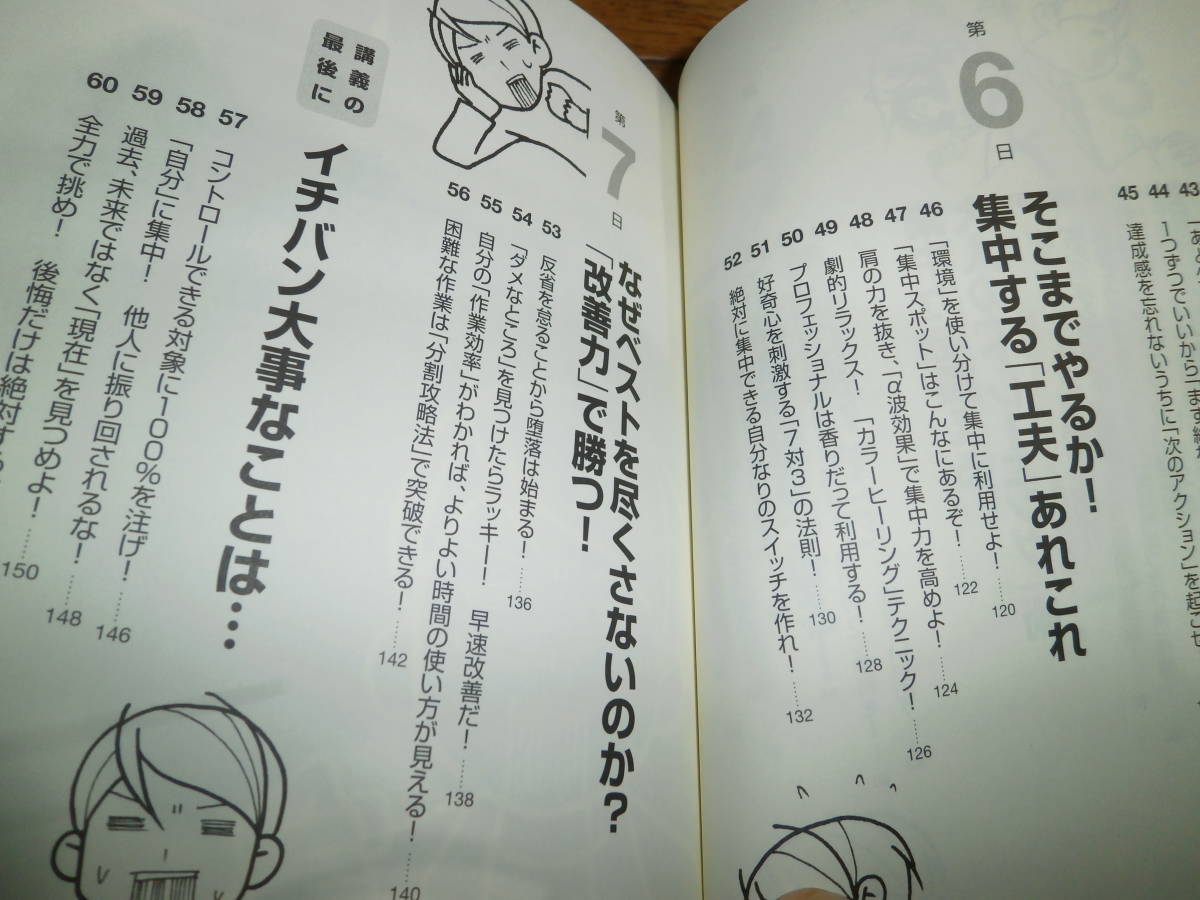 43
44 1つずつでいいから
45 達成感を忘れないうちに「次のアクション」を起こせ
第6日
そこまでやるか!
集中する「工夫」あれこれ
46 「環境」を使い分けて集中に利用せよ! ……120
47 「集中スポット」はこんなにあるぞ! ……122
48 肩の力を抜き、「α波効果」で集中力を高めよ! ……124
49 劇的リラックス! 「カラーヒーリング」テクニック! ……126
50 プロフェッショナルは香りだって利用する! ……128
51 好奇心を刺激する「7対3」の法則! ……130
52 絶対に集中できる自分なりのスイッチを作れ! ……132
第7日
なぜベストを尽くさないのか?
「改善力」で勝つ!
53 反省を怠ることから堕落は始まる! ……136
54 「ダメなところ」を見つけたらラッキー! 早速改善だ! ……138
55 自分の「作業効率」がわかれば、よりよい時間の使い方が見える! ……140
56 困難な作業は「分割攻略法」で突破できる! ……142
講義の
最後に
イチバン大事なことは…
57 コントロールできる対象に100%を注げ! ……146
58 「自分」に集中! 他人に振り回されるな! ……148
59 過去、未来ではなく「現在」を見つめよ! ……150
60 全力で挑め! 後悔だけは絶対する